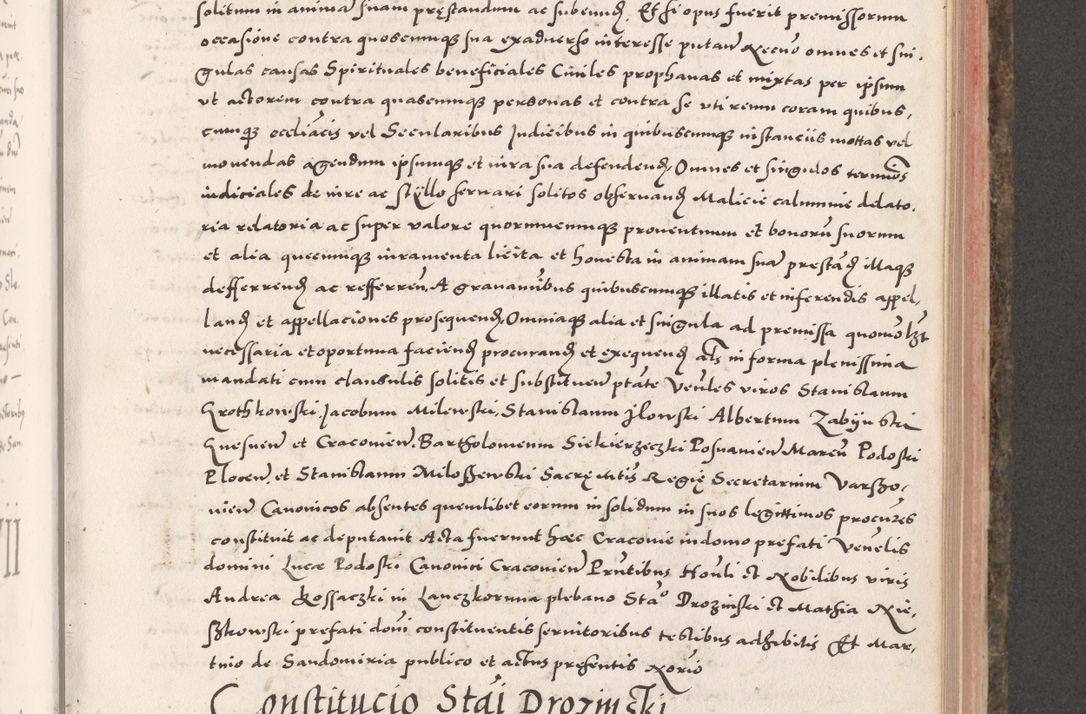 solitum in animam suam pręstandum ac subeund. Et si opus fuerit premissorum
occasione contra quoscumque sua exadverso interesse putan necno omnes et sin,
gulas causas Spirituales beneficiales Civiles prophanas et mixtas per ipsum
ut actorem contra quascumque personas et contra se uti reum coram quibus,
cumque vel Secularibus Iudicibus in quibuscumque instanciis mottas vel
movendas agendum ipsumque et iura sua defendend, Omnes et singulos terminos
iudiciales de iure ac styllo servari solitos observand Malicie calumnie delato,
ria relatoria ac super valore quorumcumque proventuum et bonorum suorum
et alia quecumque iuramenta licita et honesta in animam sua prestand illaque
defferrend ac refferren, A gravaminibus quibuscumque illatis et inferendis appel,
land et appellaciones prosequend, Omniaque alia et singula ad premissa quomodolibet
necessaria et oportuna faciend procurand et exequend als in forma plenissima
mandati cum clausulis solitis et substituen ptate Venles viros Stanislaum
Krothkowski, Jacobum Milewski, Stanislaum Jlowski Albertum Zabijnski
Gnesnen et Cracovien, Bartholomeum Siekierzeczki Posnanien Marcu Podoski
Plocen, et Stanislaum Miloszewski Sacrę mtis Regię Secretarium Varszo,
vien Canonicos absentes quemlibet eorum in solidum in suos legittimos procures
constituit ac deputavit Acta fuerunt hæc Cracovie in domo prefati Venelis
domini Lucæ Podoski Canonici Cracovien Prntibus Honli et Nobilibus viris
Andrea Kossaczki in Lanczkoruna plebano Stao Drozinski et Mathia Nie,
szkowski prefati doni constituentis servitoribus testibus adhibitis Et Mar,
tino de Sandomiria publico et actus presentis Norio
Constitucio Stai Drozinski